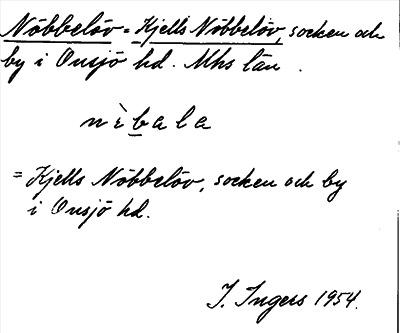 Nöbbelöv = Kjells Nöbbelöv, socken och
by i Onsjö hd. Mhs län.
nèbala
= Kjells Nöbbelöv, socken och by
i Onsjö hd.
I. Ingers 1954.